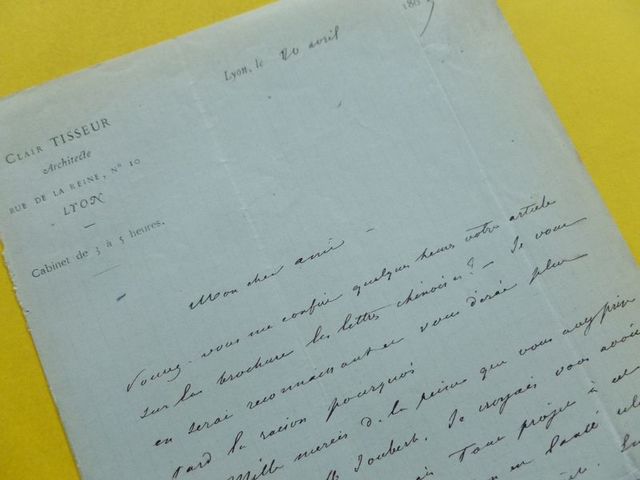 Lyon, le 20 avril 186
CLAIR TISSEUR
Architecte
RUE DE LA REINE, N° 10
LYON
Cabinet de 3 à 5 heures.
Mon cher ami -
Pouvez-vous me confier quelques heures votre article
sur la brochure les lettres chinoises? - Je vous
en serai reconnaissant et vous dirai plus
tard la raison pourquoi
Mille mercis de la peine que vous avez prise
Joubert. Je croyais vous avoir
Tout projet à cet
en santé